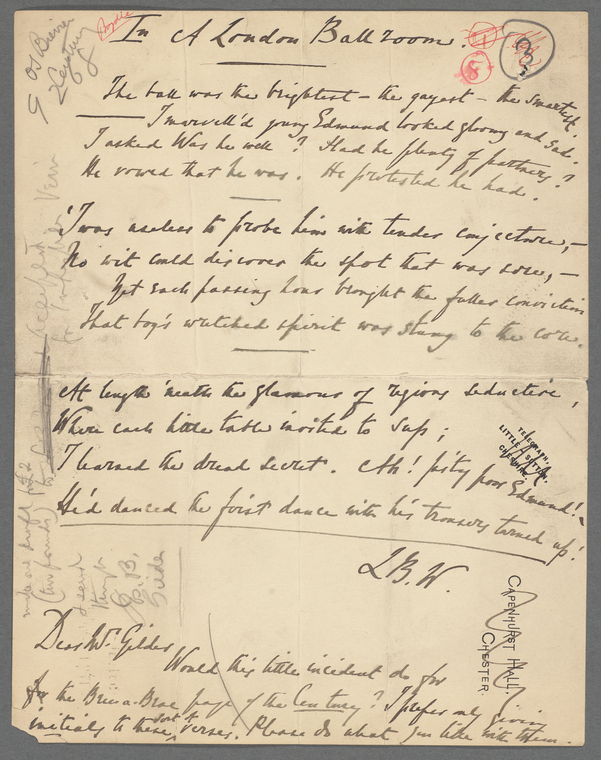 In A London Ballroom.
The ball was the brightest – the gayest – the smartest.
I marvell'd young Edmund looked gloomy and sad.
I asked Was he well? Had he plenty of partners?
He vowed that he was. He protested he had.
'Twas useless to probe him with tender conjecture, –
No wit could discover the spot that was sore, –
Yet each passing hour brought the fuller conviction
That boy's wretched spirit was stung to the core.
At length 'neath the glamour of regions seductive,
Where each little table invited to sup;
I learned the dread secret. Ah! pity poor Edmund! –
He'd danced the first dance with his trousers turned up!
L.B.W.
TELEGRAPH,
LITTLE SUTTON,
CHESHIRE.
CAPENHURST HALL,
CHESTER.
Dear Mr Gilder
Would this little incident do for
for the Bric-a-Brac page of the Century? I prefer only giving
initials to these sort of verses. Please do what you like with them.